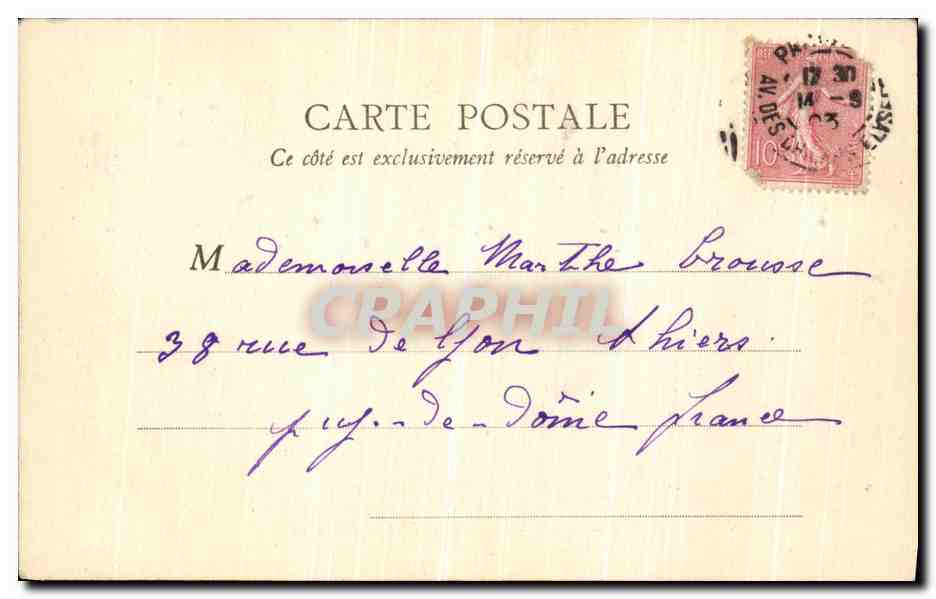 CARTE POSTALE
Ce côté est exclusivement réservé à l'adresse
Mademoiselle Marthe Brousse
38 rue de Lyon thiers
puy-de-dôme france
CPAPHIL
10
12 30
14 -9
03
AV. DES